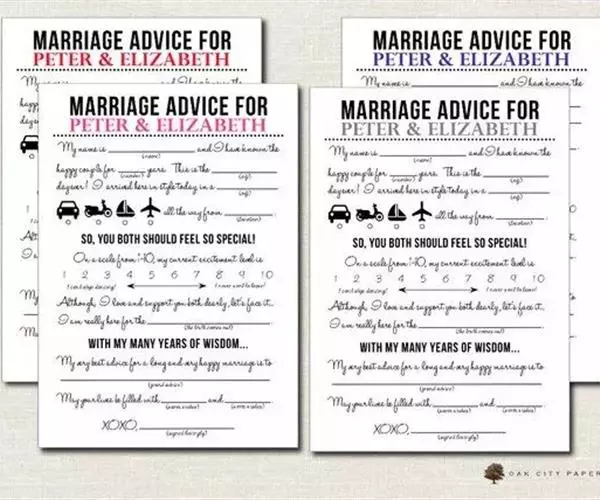 MARRIAGE ADVICE FOR
PETER & ELIZABETH
MARRIAGE ADVICE FOR
PETER & ELIZABETH
My name is ____________ and I have known the
MARRIAGE ADVICE FOR
PETER & ELIZABETH
My name is ____________ and I have known the
(name)
happy couple for ______ years. This is the ________
(number)
(adj)
day ever! I arrived here in style today in a ________
(adj)
all the way from __________.
(location)
SO, YOU BOTH SHOULD FEEL SO SPECIAL!
On a scale from 1-10, my current excitement level is
1 2 3 4 5 6 7 8 9 10
I can't stop dancing!
I never want to leave!
Although, I love and support you both dearly, let's face it...
I am really here for the ____________________
(the truth comes out)
WITH MY MANY YEARS OF WISDOM...
My very best advice for a long and very happy marriage is to
____________________
(grand advice)
May your lives be filled with ________ and ________.
(warm n solex)
(warm n solex)
XOXO, ____________________
(signed lovingly)
MARRIAGE ADVICE FOR
PETER & ELIZABETH
My name is ____________ and I have known the
(name)
happy couple for ______ years. This is the ________
(number)
(adj)
day ever! I arrived here in style today in a ________
(adj)
all the way from __________.
(location)
SO, YOU BOTH SHOULD FEEL SO SPECIAL!
On a scale from 1-10, my current excitement level is
1 2 3 4 5 6 7 8 9 10
I can't stop dancing!
I never want to leave!
Although, I love and support you both dearly, let's face it...
I am really here for the ____________________
(the truth comes out)
WITH MY MANY YEARS OF WISDOM...
My very best advice for a long and very happy marriage is to
____________________
(grand advice)
May your lives be filled with ________ and ________.
XOXO, ____________________
(signed lovingly)
OAK CITY PAPER